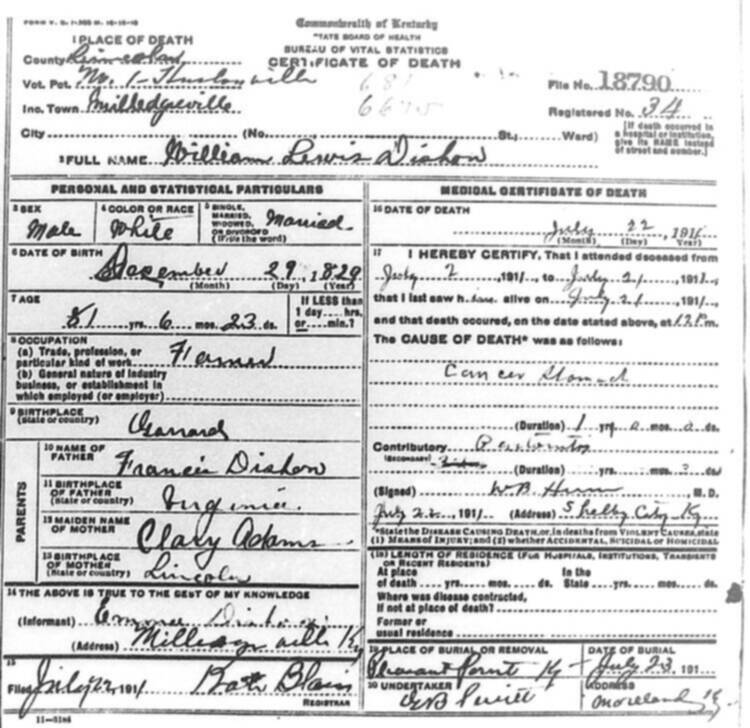 Commonwealth of Kentucky
STATE BOARD OF HEALTH
BUREAU OF VITAL STATISTICS
CERTIFICATE OF DEATH
1 PLACE OF DEATH
County Lincoln
Vot. Pct. No. 1 - Hustonville
Inc. Town Milledgeville
City (No. St.; Ward)
File No. 18790
Registered No. 34
[If death occurred in a hospital or institution, give its NAME instead of street and number.]
2 FULL NAME William Lewis Dishon
PERSONAL AND STATISTICAL PARTICULARS
3 SEX
Male
4 COLOR OR RACE
White
5 SINGLE, MARRIED, WIDOWED, OR DIVORCED (Write the word)
Married
6 DATE OF BIRTH
December 29, 1829
(Month) (Day) (Year)
7 AGE
81 yrs. 6 mos. 23 ds.
If LESS than
1 day... hrs.
or... min.?
8 OCCUPATION
(a) Trade, profession, or
particular kind of work Farmer
(b) General nature of industry
business, or establishment in
which employed (or employer)
9 BIRTHPLACE
(State or country)
Garrard
PARENTS
10 NAME OF
FATHER
Francis Dishon
11 BIRTHPLACE
OF FATHER
(State or country)
Virginia
12 MAIDEN NAME
OF MOTHER
Clary Adams
13 BIRTHPLACE
OF MOTHER
(State or country)
Lincoln
14 THE ABOVE IS TRUE TO THE BEST OF MY KNOWLEDGE
(Informant) Dishon
(Address) Milledgeville Ky
15
Filed July 22 1911 Kate Blain
REGISTRAR
MEDICAL CERTIFICATE OF DEATH
16 DATE OF DEATH
July 22, 1911
(Month) (Day) (Year)
17 I HEREBY CERTIFY, That I attended deceased from
July 2, 1911, to July 21, 1911,
that I last saw h alive on July 21, 1911,
and that death occured, on the date stated above, at m.
The CAUSE OF DEATH* was as follows:
Cancer Stomach
(Duration) 1 yrs. mos. ds.
Contributory
(SECONDARY)
(Duration) yrs. mos. ds.
(Signed) W B M. D.
July 22, 1911 (Address) Shelby City Ky
*State the DISEASE CAUSING DEATH, or, in deaths from VIOLENT CAUSES, state
(1) MEANS OF INJURY; and (2) whether ACCIDENTAL, SUICIDAL or HOMICIDAL
(18) LENGTH OF RESIDENCE (FOR HOSPITALS, INSTITUTIONS, TRANSIENTS
OR RECENT RESIDENTS)
At place In the
of death yrs. mos. ds. State yrs. mos. ds.
Where was disease contracted,
If not at place of death?
Former or
usual residence
19 PLACE OF BURIAL OR REMOVAL
Pleasant Point Ky
DATE OF BURIAL
July 23, 191
20 UNDERTAKER
ADDRESS
Moreland Ky